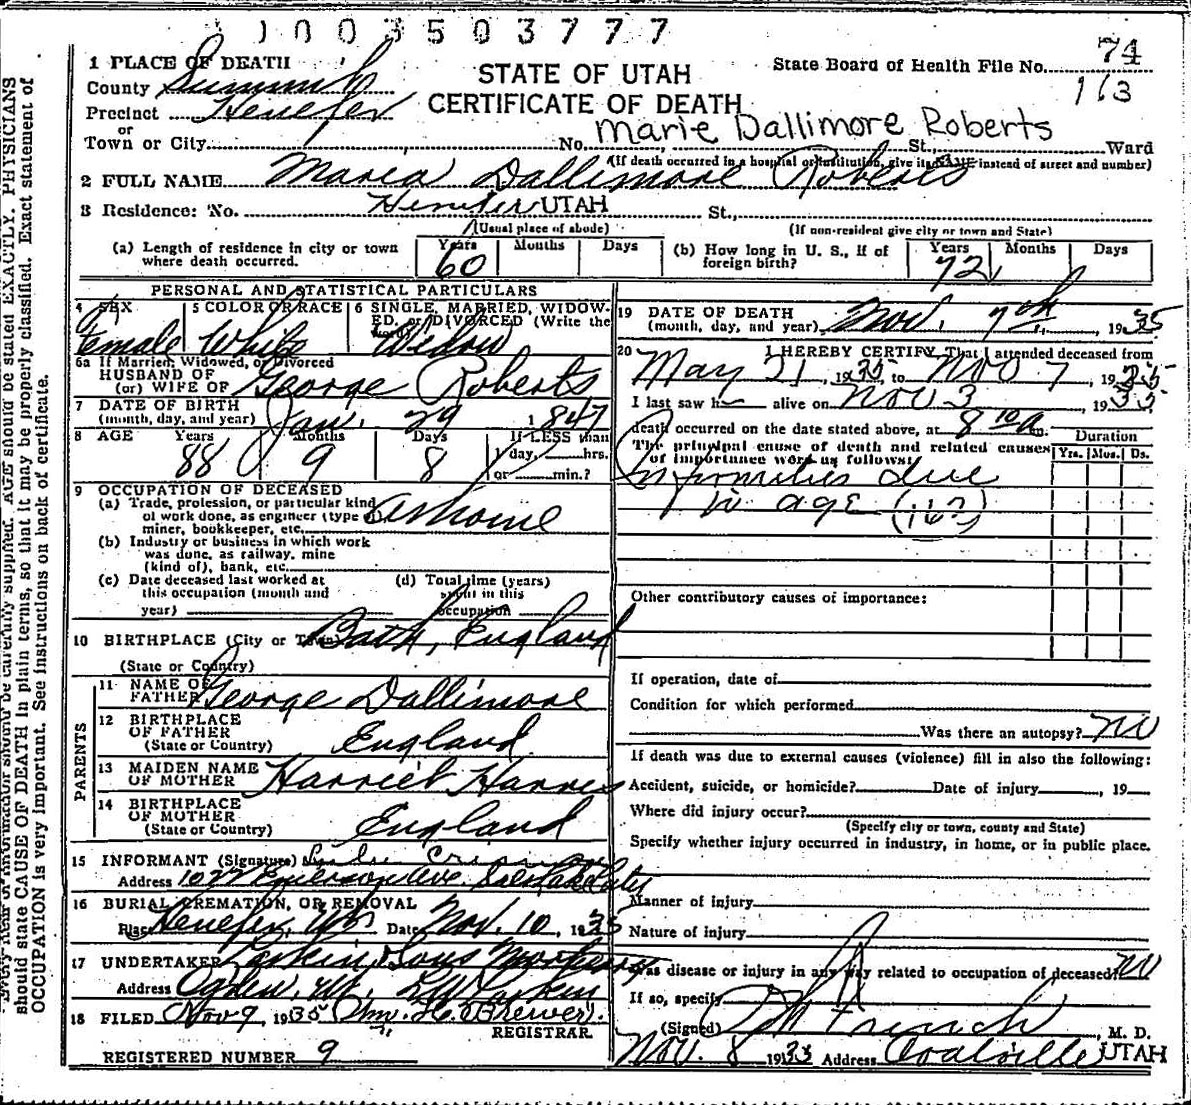 1003503777
74
STATE OF UTAH
CERTIFICATE OF DEATH
State Board of Health File No. 113
1 PLACE OF DEATH
County Summit
Precinct Henefer
or
Town or City
No. St., Ward
Marie Dallimore Roberts
(If death occurred in a hospital or institution, give its NAME instead of street and number)
2 FULL NAME Maria Dallimore Roberts
3 Residence: No. Henefer UTAH St.,
(Usual place of abode) (If non-resident give city or town and State)
(a) Length of residence in city or town where death occurred. Years 60 Months Days
(b) How long in U. S., if of foreign birth? Years 72 Months Days
PERSONAL AND STATISTICAL PARTICULARS
4 SEX Female
5 COLOR OR RACE White
6 SINGLE, MARRIED, WIDOWED, or DIVORCED (Write the word) Widow
6a If Married, Widowed, or Divorced
HUSBAND OF
(or) WIFE OF George Roberts
7 DATE OF BIRTH
(month, day, and year) Jan. 29 1847
8 AGE Years 88 Months 9 Days 8 If LESS than 1 day, hrs. or min.?
9 OCCUPATION OF DECEASED
(a) Trade, profession, or particular kind of work done, as engineer (type of miner, bookkeeper, etc. at home
(b) Industry or business in which work was done, as railway, mine (kind of), bank, etc.
(c) Date deceased last worked at this occupation (month and year)
(d) Total time (years) spent in this occupation
10 BIRTHPLACE (City or Town) Bath, England
(State or Country)
PARENTS
11 NAME OF FATHER George Dallimore
12 BIRTHPLACE OF FATHER
(State or Country) England
13 MAIDEN NAME OF MOTHER Harriet
14 BIRTHPLACE OF MOTHER
(State or Country) England
15 INFORMANT (Signature)
Address 1027 Emerson Ave. Salt Lake City
16 BURIAL, CREMATION, OR REMOVAL
Place Henefer, Ut. Date Nov. 10, 1935
17 UNDERTAKER Larkin & Sons Mortuary
Address Ogden, Ut. Larkin
18 FILED Nov 9 1935 Wm. H. Brewer.
REGISTRAR
REGISTERED NUMBER 9
19 DATE OF DEATH
(month, day, and year) Nov. 7th, 1935
20 I HEREBY CERTIFY, That I attended deceased from
May 21, 1935, to Nov 7, 1935
I last saw h alive on Nov 3, 1935
death occurred on the date stated above, at 8 10 a m.
The principal cause of death and related causes of importance were as follows:
Duration
Yrs. Mos. Ds.
Infirmities due
to age (162)
Other contributory causes of importance:
If operation, date of
Condition for which performed
Was there an autopsy? No
If death was due to external causes (violence) fill in also the following:
Accident, suicide, or homicide? Date of injury , 19
Where did injury occur?
(Specify city or town, county and State)
Specify whether injury occurred in industry, in home, or in public place.
Manner of injury
Nature of injury
Was disease or injury in any way related to occupation of deceased? No
If so, specify
(Signed) , M. D.
Nov. 8 1935 Address Coalville UTAH
should state CAUSE OF DEATH in plain terms, so that it may be properly classified. Exact statement of
OCCUPATION is very important. See instructions on back of certificate.